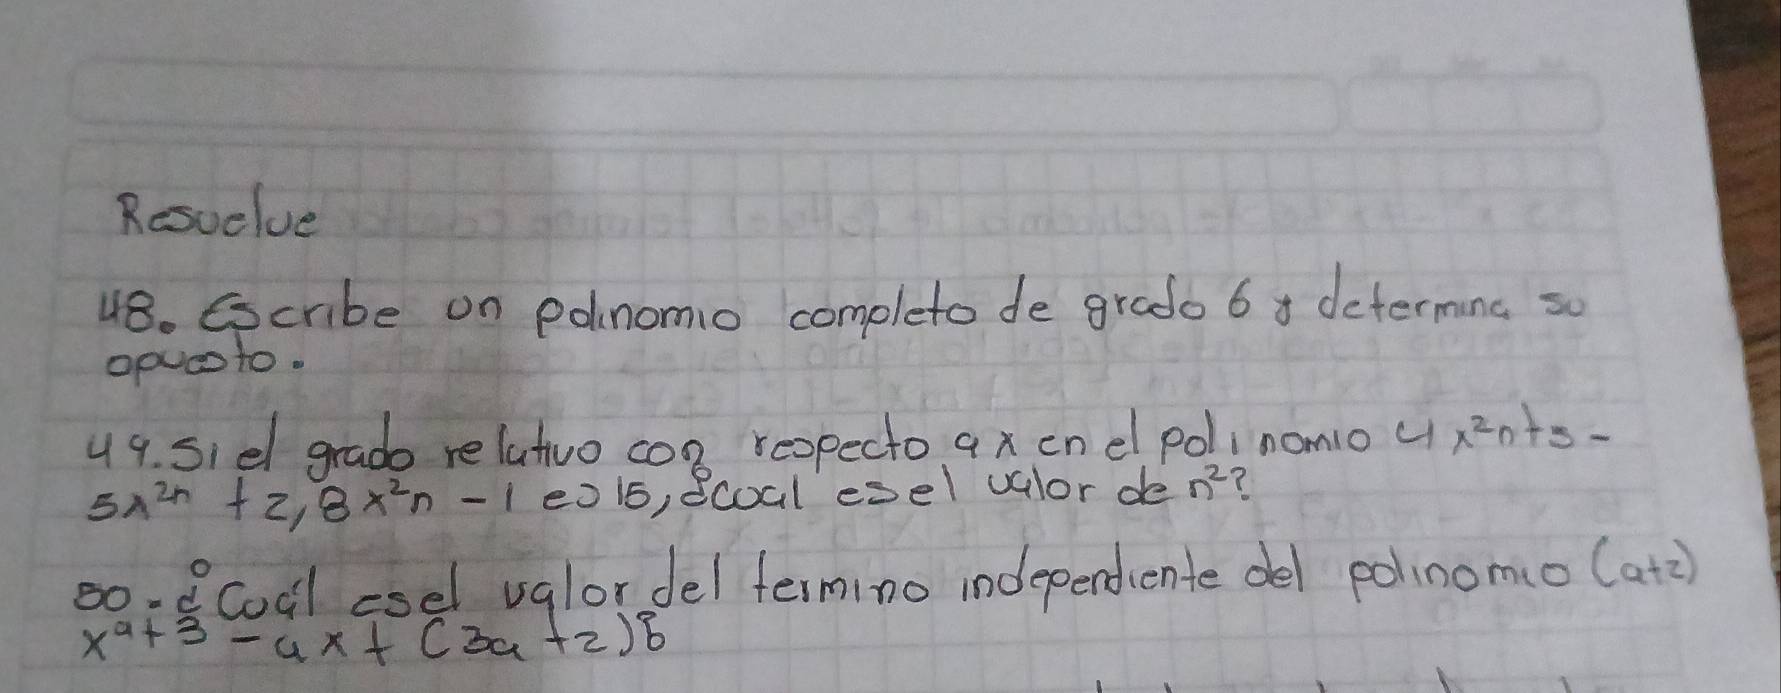 Resuelve
48. Escribe un polinomio completo de grado 6 y determina su
opuesto.
49. Si el grado relativo con respecto a x en el polinomio 4x²n+3 -
5x²ⁿ + 2, 8x²n - 1 es 15, ¿cual es el valor de n²?
50. ¿Cuál es el valor del termino independiente del polinomio (a+2)
xᵃ+3 - 4x + (3a+2)8